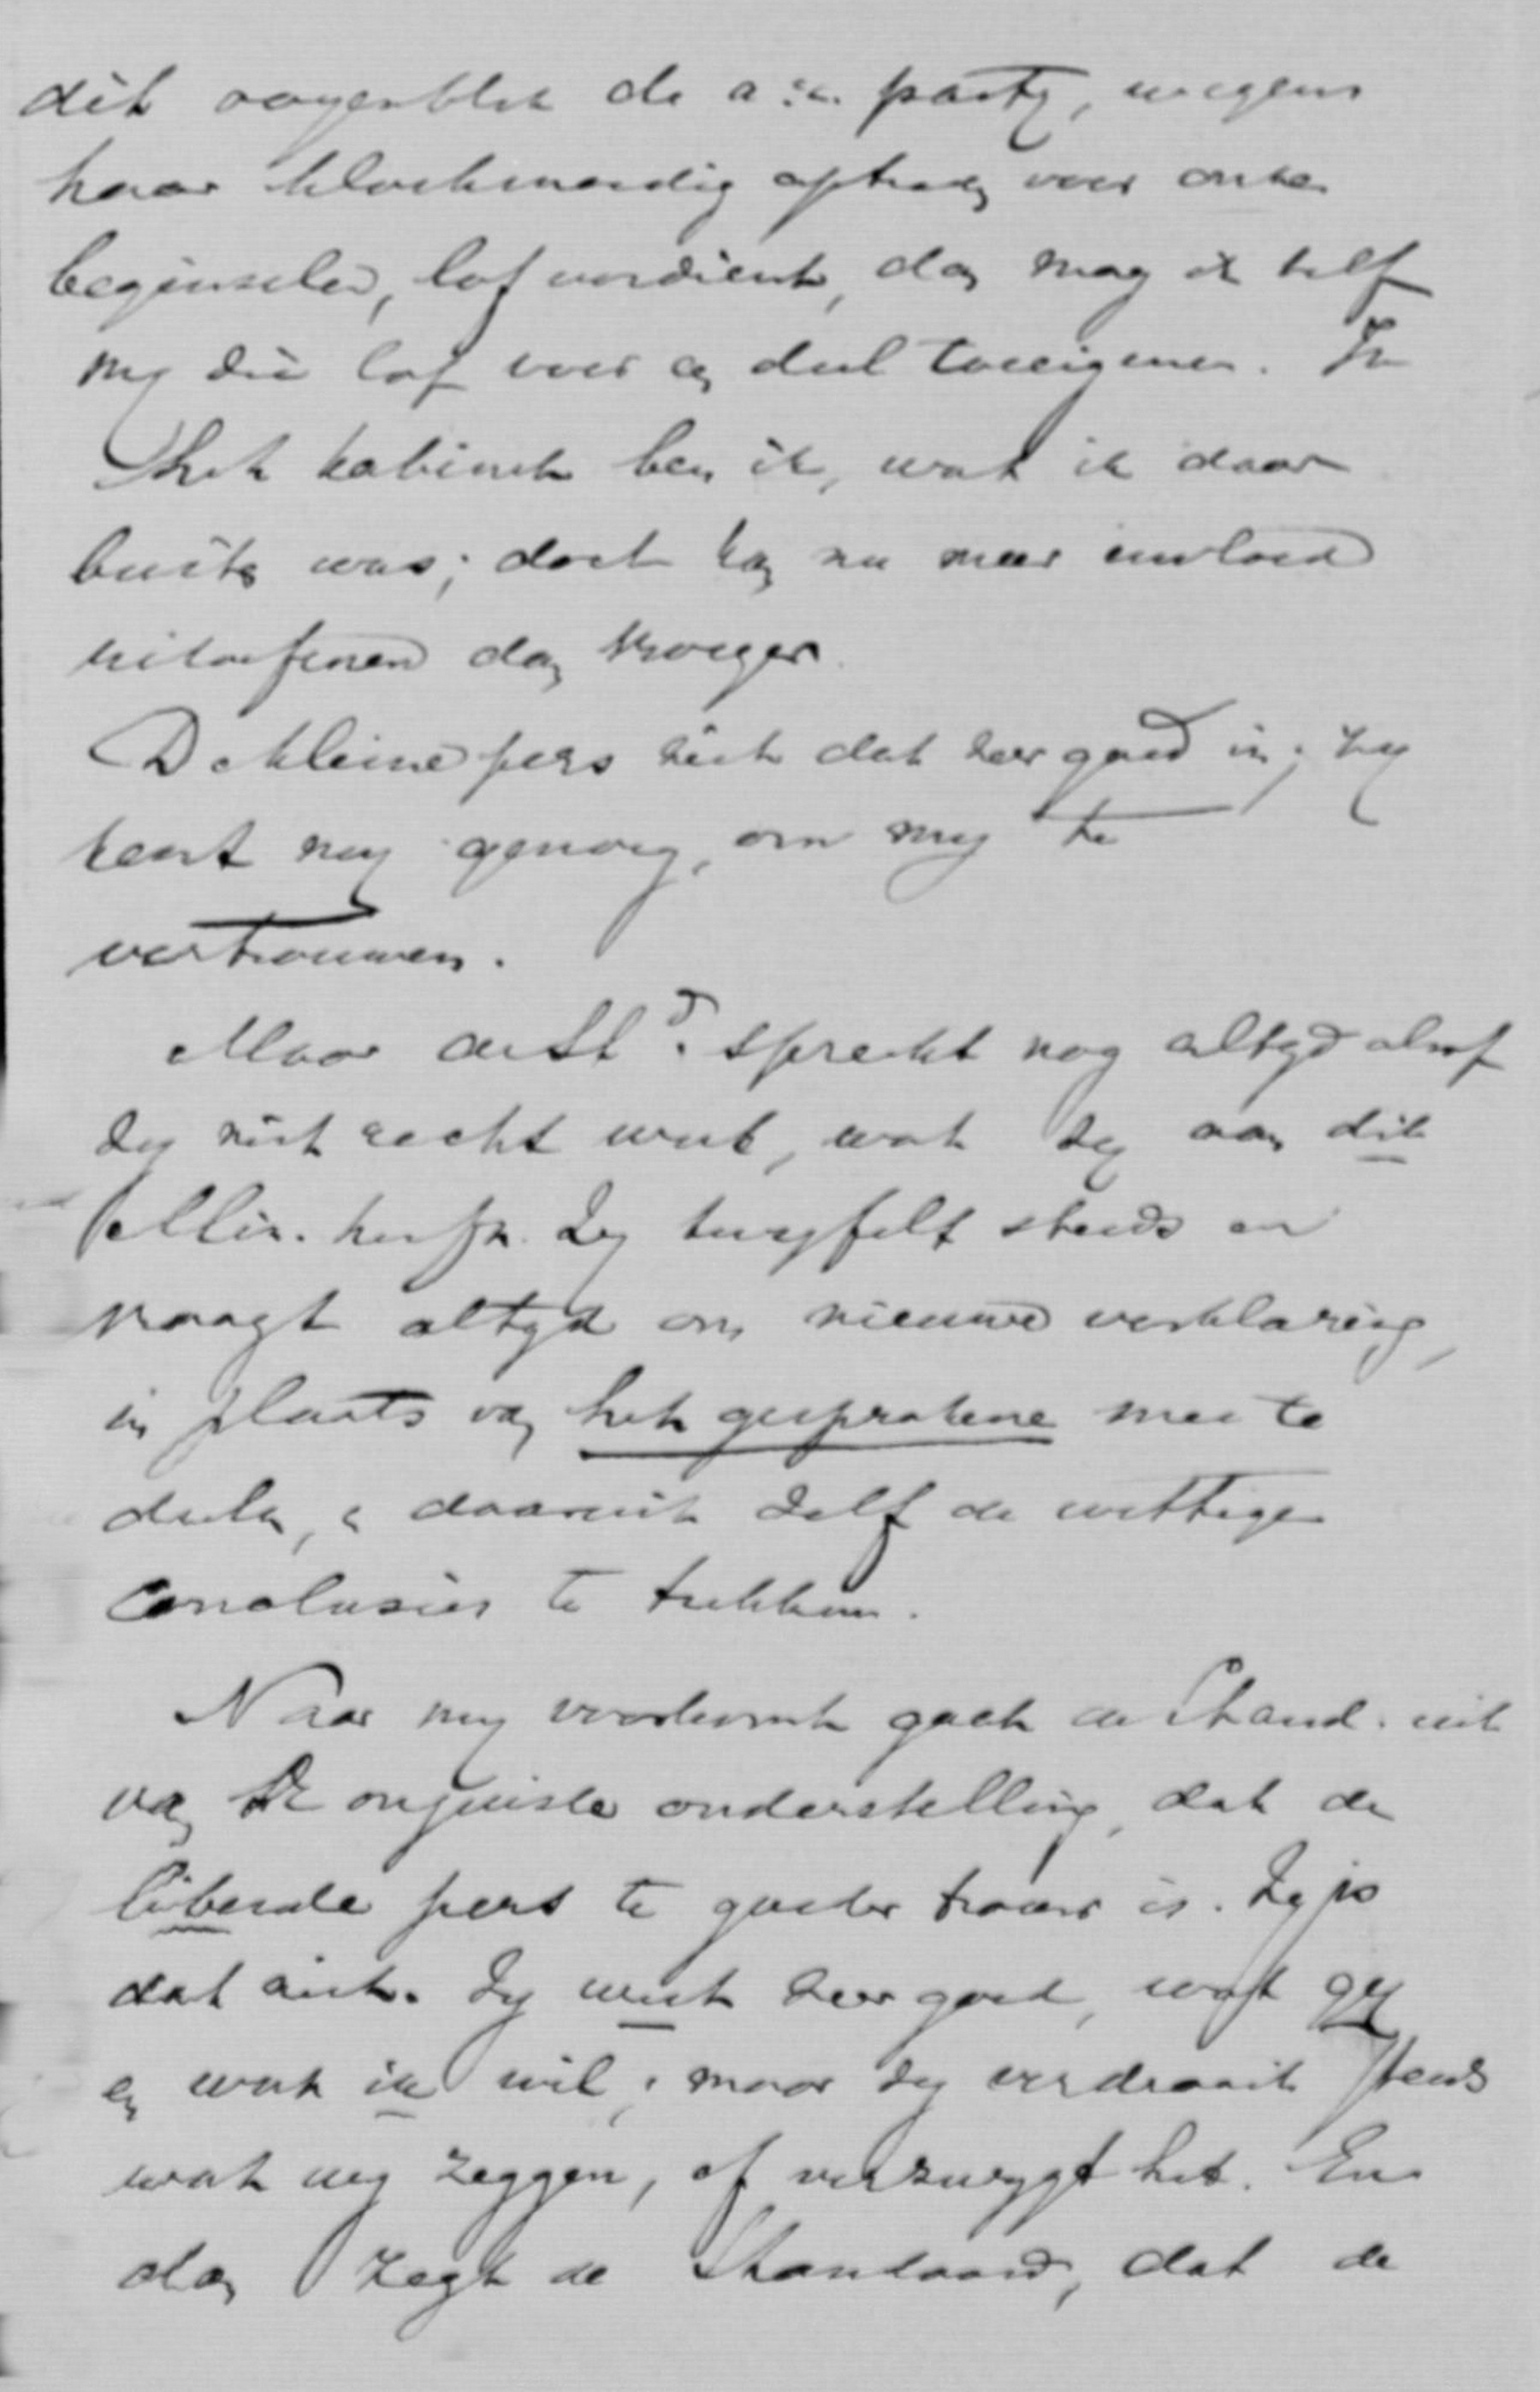 dit oogenblik de a:r. party, wegens
haar kloekmoedig optreden voor onze
beginselen, lof verdient, dan mag ik zelf
my die lof voor een deel toeeigenen. In
het kabinet ben ik, wat ik daar
buiten was; doch kan nu meer invloed
uitoefenen dan vroeger.
De kleine pers ziet dat zeer goed in; zy
kent my genoeg, om my te
vertrouwen.
Maar de Std. spreekt nog altyd alsof
zy niet recht weet, wat zy aan dit
Min. heeft. Zy twyfelt steeds en
vraagt altyd om nieuwe verklaring,
in plaats van het gesprokene mee te
deelen, en daaruit zelf de wettige
conclusies te trekken.
Naar my voorkomt gaat de Stand. uit
van de onjuiste onderstelling, dat de
liberale pers te goeder trouw is. Zy is
dat niet. Zy weet zeer goed, wat gy
en wat ik wil; maar zy verdraait steeds
wat wy zeggen, of verzwygt het. En
dan zegt de Standaard, dat de